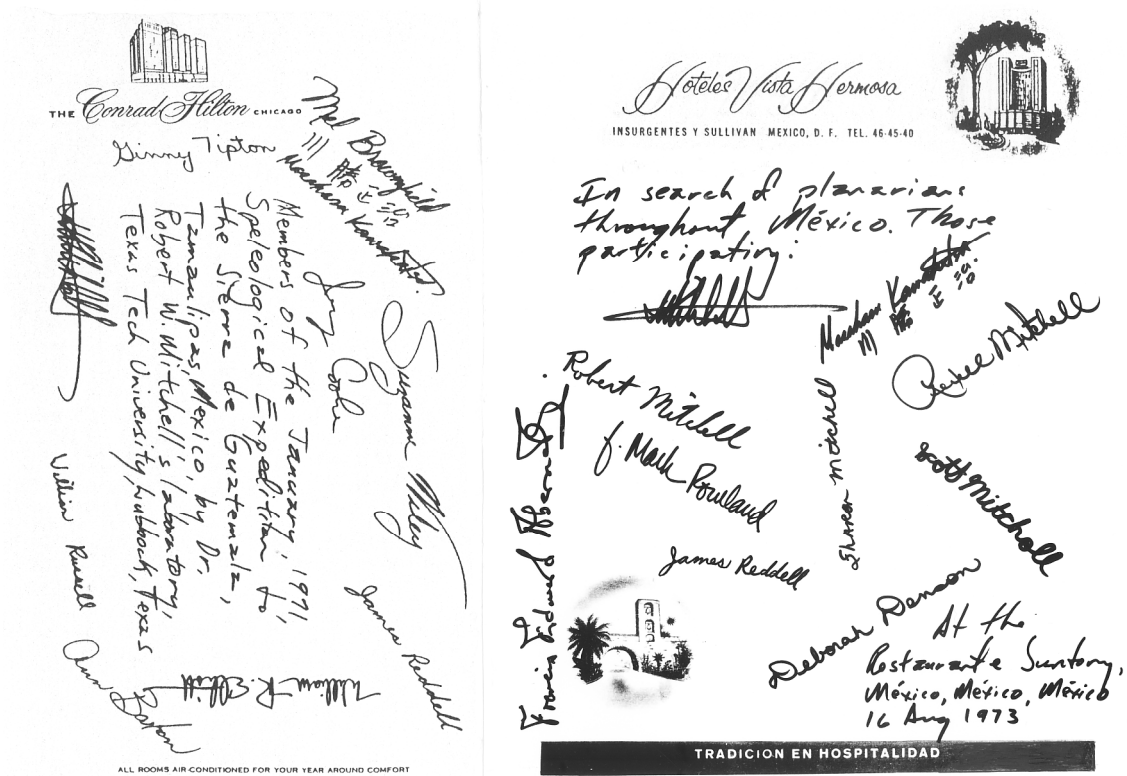 THE Conrad Hilton CHICAGO
Ginny Tipton
Mel Broomfield
Masaharu Kawakatsu
Members of the January, 1971,
Speleological Expedition to
the Sierra de Guatemala,
Tamaulipas, Mexico, by Dr.
Robert W. Mitchell's laboratory,
Texas Tech University, Lubbock, Texas
Jerry Cooke
Suzanne Wiley
James Reddell
William R. Elliott
Ann Barton
William Russell
ALL ROOMS AIR-CONDITIONED FOR YOUR YEAR AROUND COMFORT
Hoteles Vista Hermosa
INSURGENTES Y SULLIVAN MEXICO, D. F. TEL. 46-45-40
In search of planarians
throughout México. Those
participating:
Masaharu Kawakatsu
Robert Mitchell
J. Mark Rowland
Sharon Mitchell
Scott Mitchell
James Reddell
Francis Edward Abernethy
Deborah Denson
At the
Restaurante Suntory,
México, México, México
16 Aug 1973
TRADICION EN HOSPITALIDAD